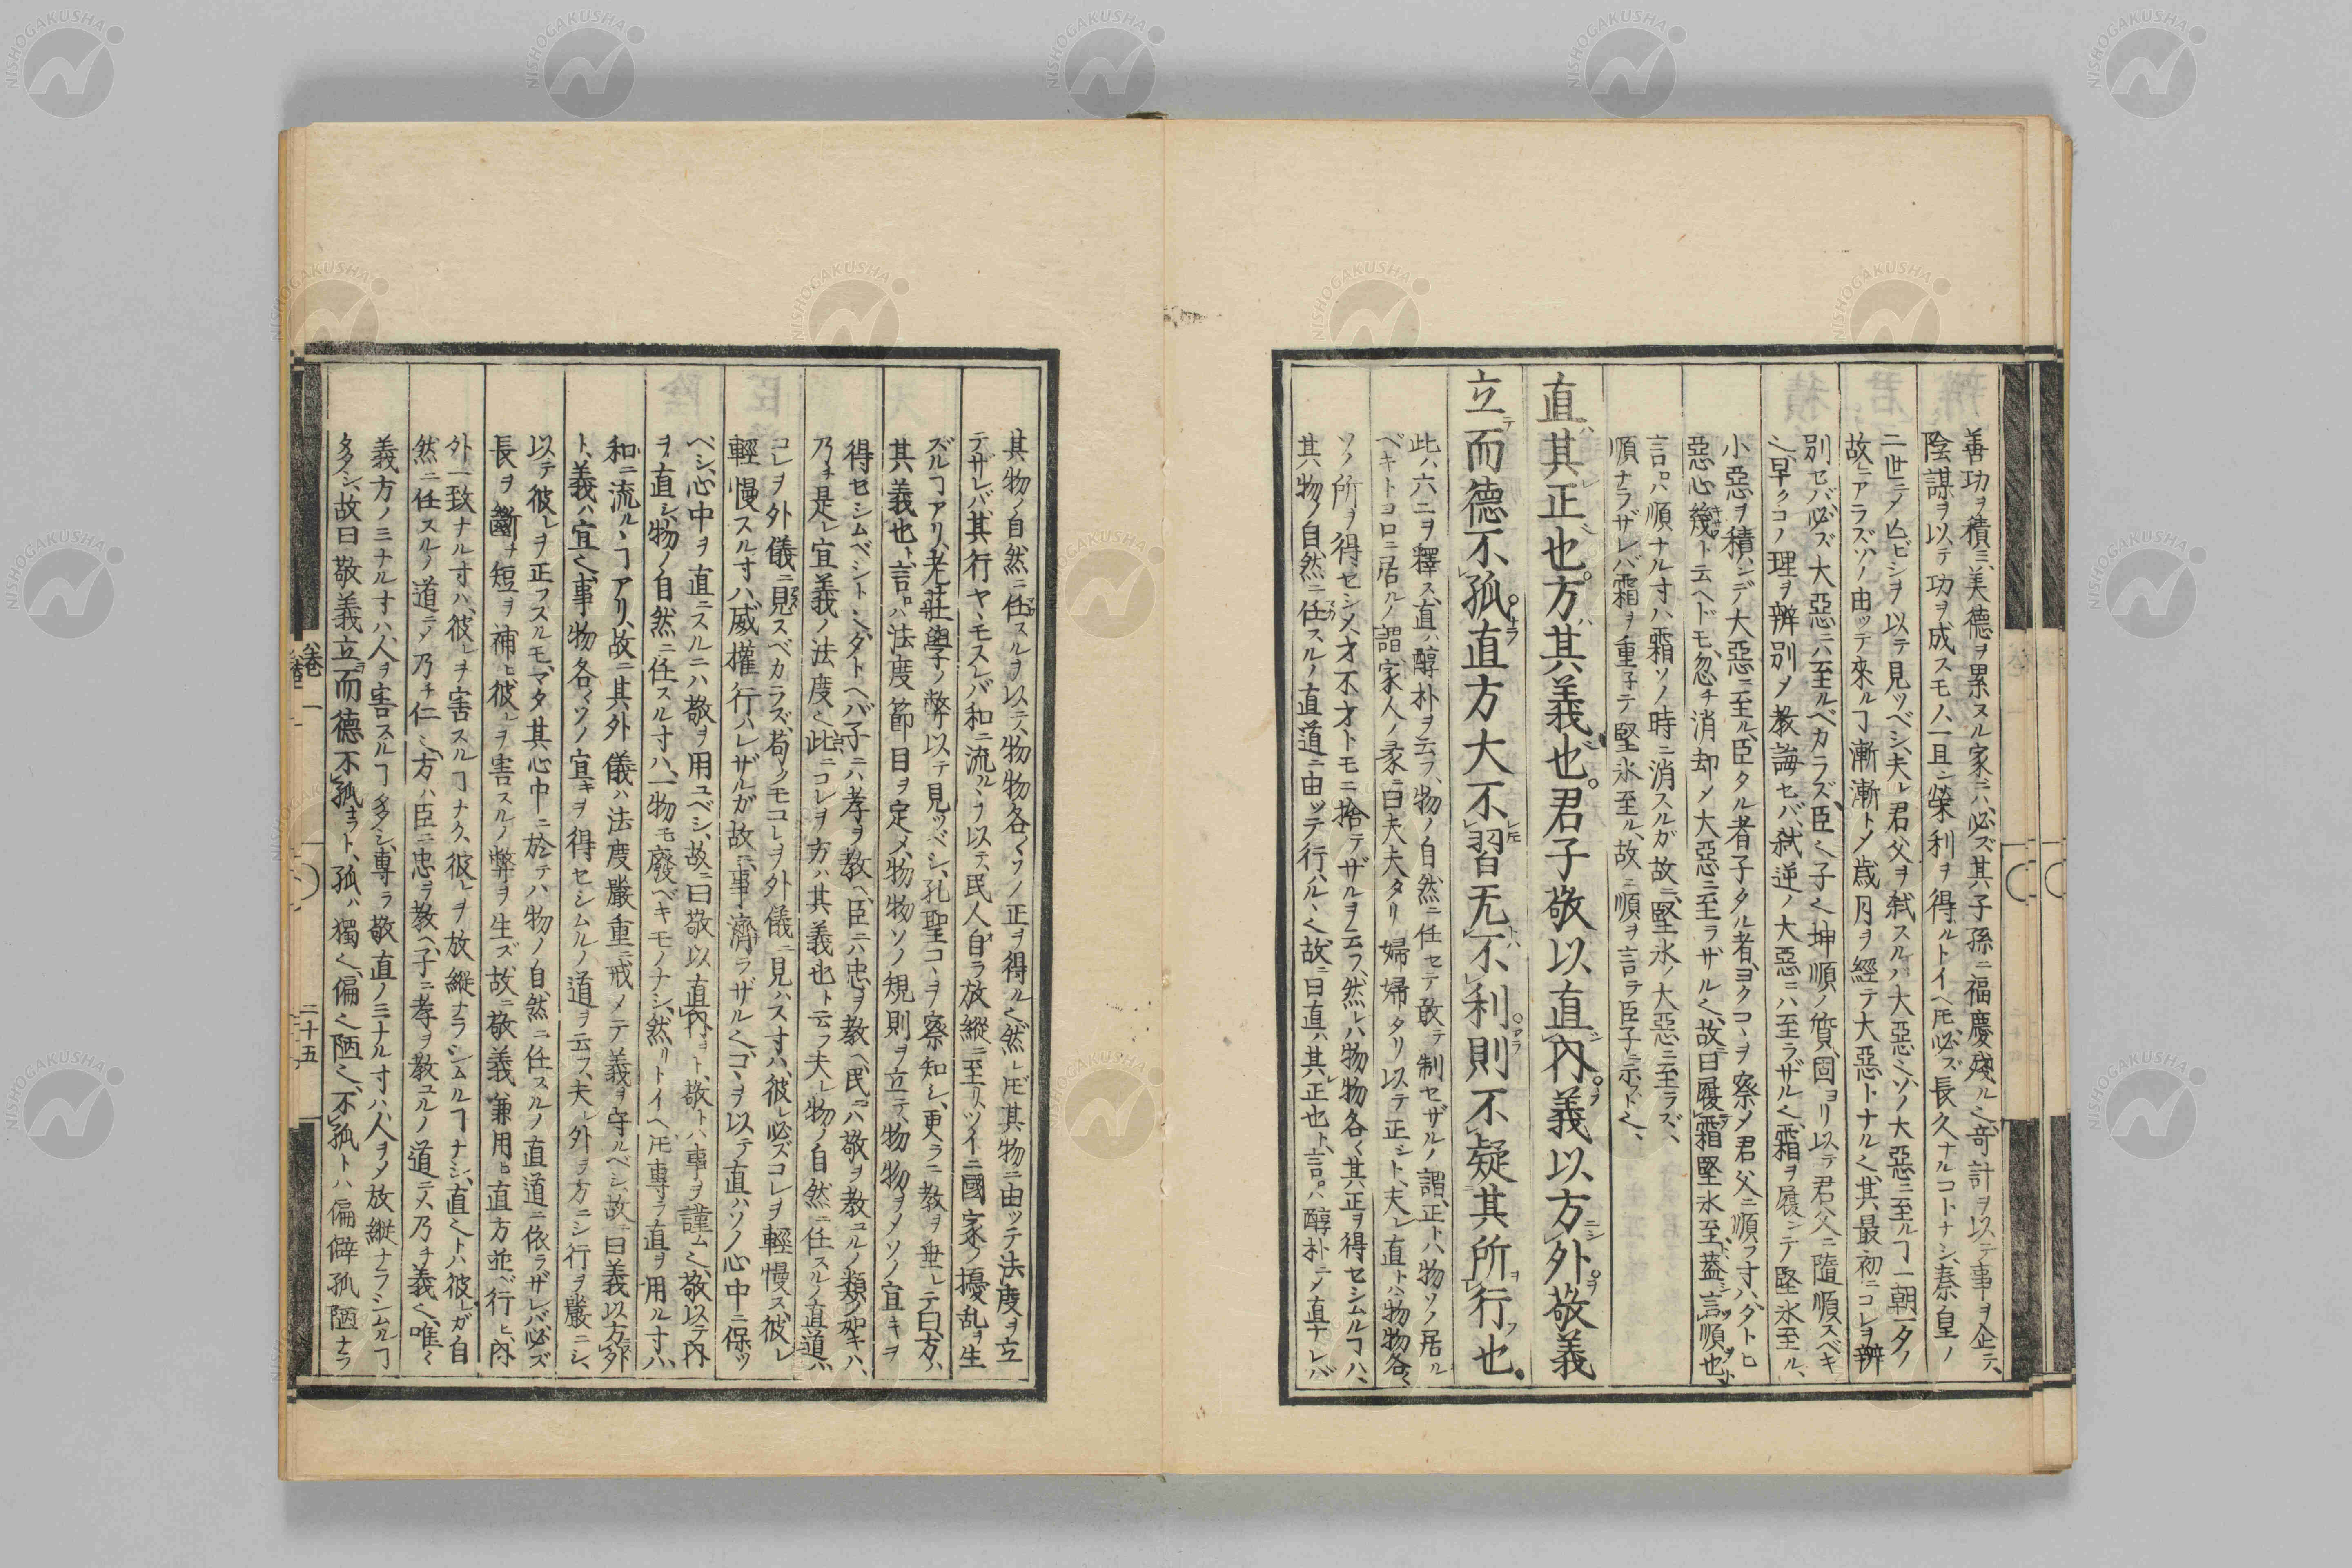 善功ヲ積ミ、美德ヲ累スル家ニハ、必ズ其子孫ニ福慶殘ル𪜈奇計ヲ以テ事ヲ企テ、
陰謀ヲ以テ功ヲ成スモノハ、一旦ノ榮利ヲ得ルトイヘ𪜈、必ズ長久ナルコトナシ、秦皇ノ
二世ニノ亡ビシヲ以テ見ツベシ、夫レ君父ヲ弑スルハ大惡也、ソノ大惡ニ至ルヿ一朝一夕ノ
故ニアラズ、ソノ由ッテ來ルヿ漸漸トメ歲月ヲ經テ大惡トナル也、其最初ニコレヲ辨
別セバ、必ズ大惡ニハ至ルベカラズ、臣也子也坤順ノ質、固ヨリ以テ君父ニ隨順スベキ
也、早クコノ理ヲ辨別メ教誨セバ、弑逆ノ大惡ニハ至ラザル也、霜ヲ履ンデ堅氷至ル、
小惡ヲ積ンデ大惡ニ至ル、臣タル者子タル者、ヨクコヽヲ察メ君父ニ順フ寸ハ、タトヒ
惡心幾スト云ヘドモ、忽チ消却メ大惡ニ至ラザル也、故ニ曰履霜堅氷至、蓋言順也ト、
言ロハ順ナル寸ハ霜ソノ時ニ消スルガ故ニ、堅氷ノ大惡ニ至ラズ、
順ナラザレバ霜ヲ重子テ堅氷至ル、故ニ順ヲ言ラ臣子ニ示ス也、
直其正也。方其義也。君子敬以直内。義以方外。敬義
立而德不孤。直方大不習无不利。則不疑其所行也。
此ハ六二ヲ釋ス、直ハ醇朴ヲ云フ、物ノ自然ニ任セテ敢テ制セザルノ謂、正トハ物ソノ居ル
ベキトコロニ居ルノ謂、家人ノ彖ニ曰夫夫タリ婦婦タリ以テ正シト、夫レ直トハ物物各〻
ソノ所ヲ得セシメ、才不才トモニ捨テザルヲ云フ、然レハ物物各〻其正ヲ得セシムルヿハ、
其物ノ自然ニ任スルノ直道ニ由ッテ行ハルヽ也、故ニ曰直ハ其正也ト、言ロハ醇朴ニメ直ナレバ
其物ノ自然ニ任スルヲ以テ、物物各〻ソノ正ヲ得ル也、然レ𪜈其物ニ由ッテ法度ヲ立
テザレバ、其行ヤヽモスレバ和ニ流ルヽヲ以テ、民人自ラ放縱ニ至リ、ツイニ國家ノ擾乱ヲ生
ズルヿアリ、老莊學ノ弊以テ見ッベシ、孔聖コヽヲ察知シ、更ラニ教ヲ垂レテ曰、方ハ
其義也ト、言ロハ法度節目ヲ定メ、物物ソノ規則ヲ立テ、物物ヲメソノ宜キヲ
得セシムベシト也、タトヘバ子ニハ孝ヲ教ヘ、臣ニハ忠ヲ教ヘ、民ニハ敬ヲ教ユルノ類ノ如キハ、
乃チ是レ宜義ノ法度也、此ニコレヲ方ハ其義也ト云フ、夫レ物ノ自然ニ任スルノ直道ハ、
コレヲ外儀ニ見スベカラズ、苟クモコレヲ外儀ニ見ハス寸ハ、彼レ必ズコレヲ輕慢ス、彼レ
輕慢スル寸ハ威權行ハレザルガ故ニ、事濟ラザル也、コヽヲ以テ直ハソノ心中ニ保ツ
ベシ、心中ヲ直ニスルニハ敬ヲ用ユベシ、故ニ曰敬以直内ト、敬トハ事ヲ謹ム也、敬以テ内
ヲ直シ、物ノ自然ニ任スル寸ハ、一物モ廢ベキモノナシ、然リトイヘ𪜈專ラ直ヲ用ル寸ハ、
和ニ流ルヽヿアリ、故ニ其外儀ハ法度嚴重ニ戒メテ義ヲ守ルベシ、故ニ曰義以方外
ト、義ハ宜也、事物各〻ソノ宜キヲ得セシムルノ道ヲ云フ、夫レ外ヲ方ニシ行ヲ嚴ニシ、
以テ彼レヲ正フスルモ、マタ其心中ニ於テハ物ノ自然ニ任スルノ直道ニ依ラザレバ、必ズ
長ヲ斷チ短ヲ補ヒ、彼レヲ害スルノ弊ヲ生ズ、故ニ敬義兼用ヒ直方並ベ行ヒ、内
外一致ナル寸ハ、彼レヲ害スルヿナク、彼レヲ放縱ナラシムルヿナシ、直也トハ彼レガ自
然ニ任スルノ道ニメ乃チ仁也、方ハ臣ニ忠ヲ教ヘ、子ニ孝ヲ教ユルノ道ニメ乃チ義也、唯〻
義方ノミナル寸ハ、人ヲ害スルヿ多シ、專ラ敬直ノミナル寸ハ、人ヲメ放縱ナラシムルヿ
多シ、故曰敬義立而德不孤ト、孤ハ獨也、偏也陋也、不孤トハ偏僻孤陋ナラ
卷一
二十五